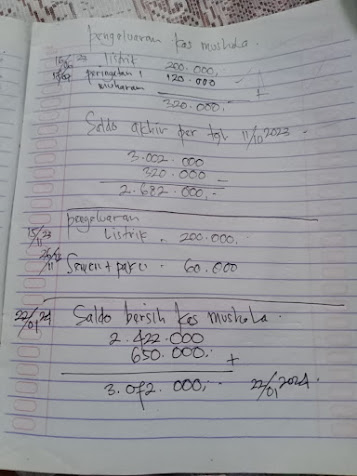 pengeluaran kas mushola.
listrik 200.000,-
peringatan 1 120.000
muharam +
320.000,-
Saldo akhir per tgl 11/10 2023 -
3.002.000
320.000 -
2.682.000,-
pengeluaran
15/23 11 listrik . 200.000,-
25/23 11 Semen + paku . 60.000
22/24 01 Saldo bersih kas mushola.
2.422.000
650.000,- +
3.072.000,- 22/01 2024.